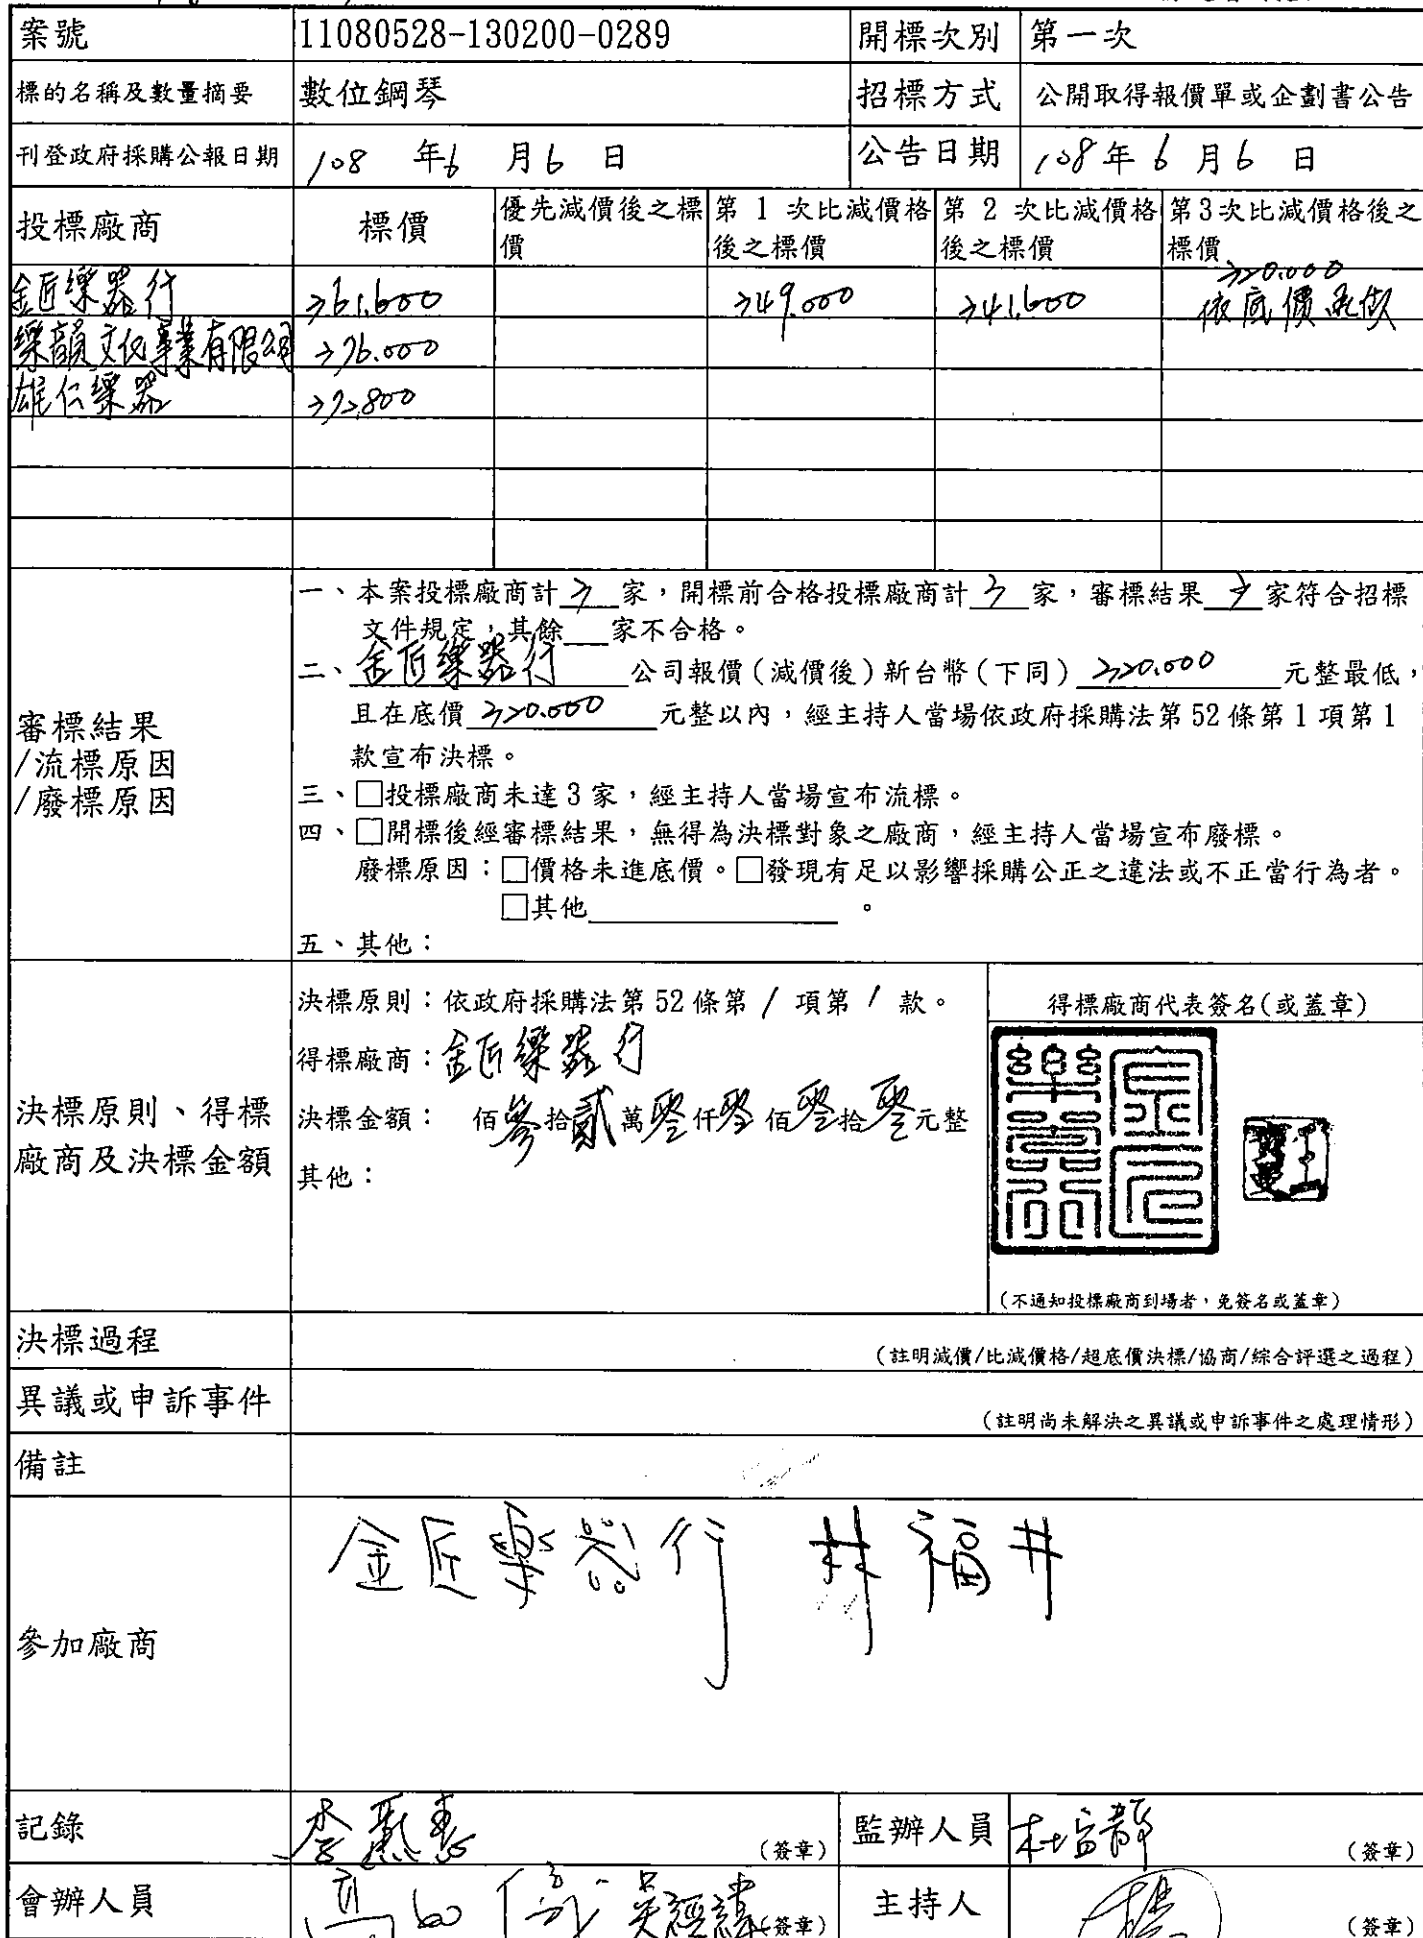 案號 11080528-130200-0289 開標次別 第一次
標的名稱及數量摘要 數位鋼琴 招標方式 公開取得報價單或企劃書公告
刊登政府採購公報日期 108 年 6 月 6 日 公告日期 108 年 6 月 6 日
投標廠商 標價 優先減價後之標價 第 1 次比減價格後之標價 第 2 次比減價格後之標價 第3次比減價格後之標價
金匠樂器行 361,600 349,000 341,600 320,000 依底價承做
樂韻文化事業有限公司 376,000
雄仁樂器 372,800
審標結果
/流標原因
/廢標原因
一、本案投標廠商計 3 家，開標前合格投標廠商計 3 家，審標結果 3 家符合招標
文件規定，其餘 家不合格。
二、金匠樂器行 公司報價(減價後)新台幣(下同) 320,000 元整最低，
且在底價 320,000 元整以內，經主持人當場依政府採購法第 52 條第 1 項第 1
款宣布決標。
三、□投標廠商未達 3 家，經主持人當場宣布流標。
四、□開標後經審標結果，無得為決標對象之廠商，經主持人當場宣布廢標。
廢標原因：□價格未進底價。□發現有足以影響採購公正之違法或不正當行為者。
□其他 。
五、其他：
決標原則、得標
廠商及決標金額
決標原則：依政府採購法第 52 條第 1 項第 1 款。
得標廠商：金匠樂器行
決標金額： 佰參拾貳萬零仟零佰零拾零元整
其他：
得標廠商代表簽名(或蓋章)
金匠樂器行
(不通知投標廠商到場者，免簽名或蓋章)
決標過程 (註明減價/比減價格/超底價決標/協商/綜合評選之過程)
異議或申訴事件 (註明尚未解決之異議或申訴事件之處理情形)
備註
參加廠商 金匠樂器行 林福井
記錄 (簽章) 監辦人員 (簽章)
會辦人員 (簽章) 主持人 (簽章)